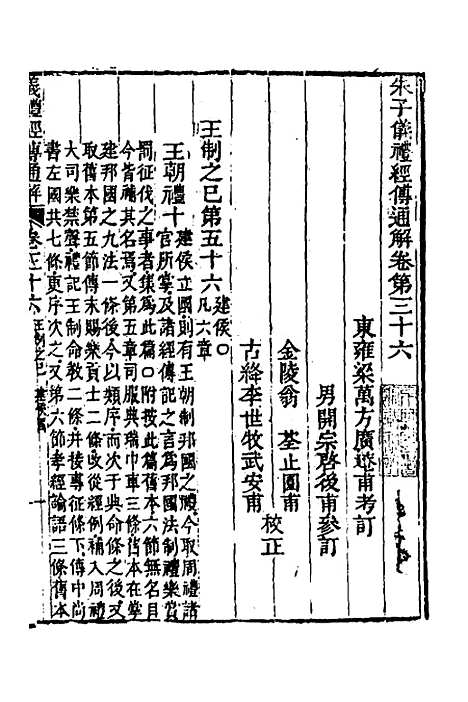 朱子儀禮經傳通解卷第三十六
東雍梁萬方廣遼甫考訂
男開宗啓後甫參訂
金陵翁荃止園甫
古絳李世牧武安甫
校正
王制之己第五十六
建侯〇
凡六章
王朝禮十
建侯立國則有王朝制邦國之禮今取周禮諸
官所掌及諸經傳記之言為邦國法制禮樂賞
罰征伐之事者集為此篇〇附按此篇舊本六節無名目
今皆補其名焉又第五章司服典瑞巾車三條舊本在掌
建邦國之九法一條後今以類序而次于典命條之後又
取舊本第五節傳末賜樂貢士二條改從經例補入周禮
大司樂禁聲禮記王制命教二條并接專征條下傳中尚
書左國共七條東序次之又第六節孝經論語三條舊本
義禮經傳通解
卷三十六
王制之己
建侯
一